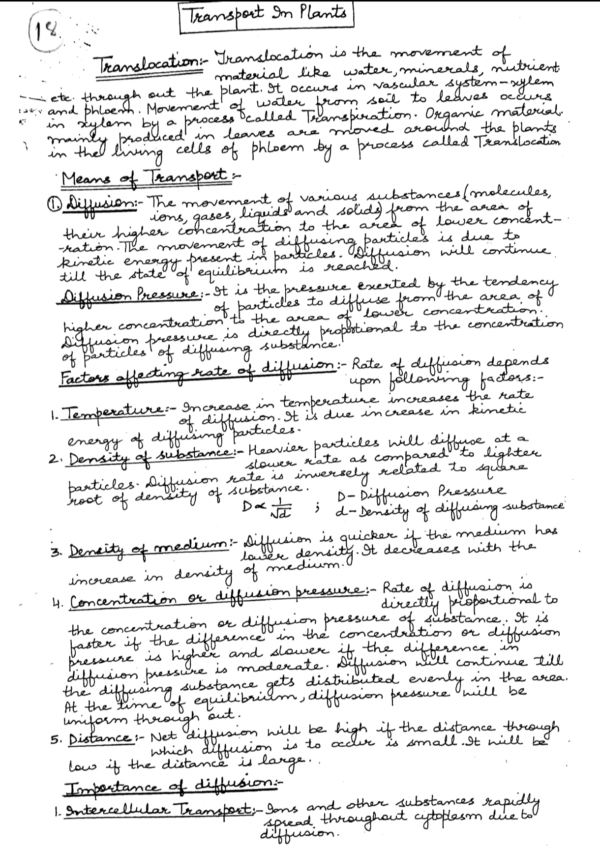 18
Transport In Plants
Translocation:- Translocation is the movement of
material like water, minerals, nutrient
etc. through out the plant. It occurs in vascular system-xylem
and phloem. Movement of water from soil to leaves occurs
in xylem by a process called Transpiration. Organic material
mainly produced in leaves are moved around the plants
in the living cells of phloem by a process called Translocation
Means of Transport:-
① Diffusion:- The movement of various substances (molecules,
ions, gases, liquids and solids) from the area of
their higher concentration to the area of lower concent-
-ration. The movement of diffusing particles is due to
kinetic energy present in particles. Diffusion will continue
till the state of equilibrium is reached.
Diffusion Pressure:- It is the pressure exerted by the tendency
of particles to diffuse from the area of
higher concentration to the area of lower concentration.
Diffusion pressure is directly propotional to the concentration
of particles of diffusing substance.
Factors affecting rate of diffusion:- Rate of diffusion depends
upon following factors:-
1. Temperature:- Increase in temperature increases the rate
of diffusion. It is due increase in kinetic
energy of diffusing particles.
2. Density of substance:- Heavier particles will diffuse at a
slower rate as compared to lighter
particles. Diffusion rate is inversely related to square
root of density of substance.
D ∝ 1/√d ; D- Diffusion Pressure
d- Density of diffusing substance
3. Density of medium:- Diffusion is quicker if the medium has
lower density. It decreases with the
increase in density of medium.
4. Concentration or diffusion pressure:- Rate of diffusion is
directly proportional to
the concentration or diffusion pressure of substance. It is
faster if the difference in the concentration or diffusion
pressure is higher and slower if the difference in
diffusion pressure is moderate. Diffusion will continue till
the diffusing substance gets distributed evenly in the area.
At the time of equilibrium, diffusion pressure will be
uniform through out.
5. Distance:- Net diffusion will be high if the distance through
which diffusion is to occur is small. It will be
low if the distance is large.
Importance of diffusion:-
1. Intercellular Transport:- Ions and other substances rapidly
spread throughout cytoplasm due to
diffusion.